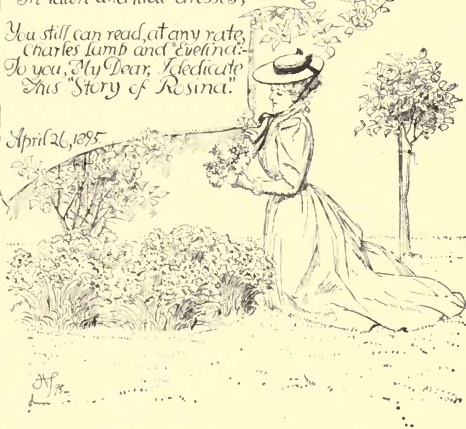 In lawn and
You still can read, at any rate,
Charles Lamb and "Evelina:"-
To you, My Dear, I dedicate
This "Story of Rosina."
April 26, 1895